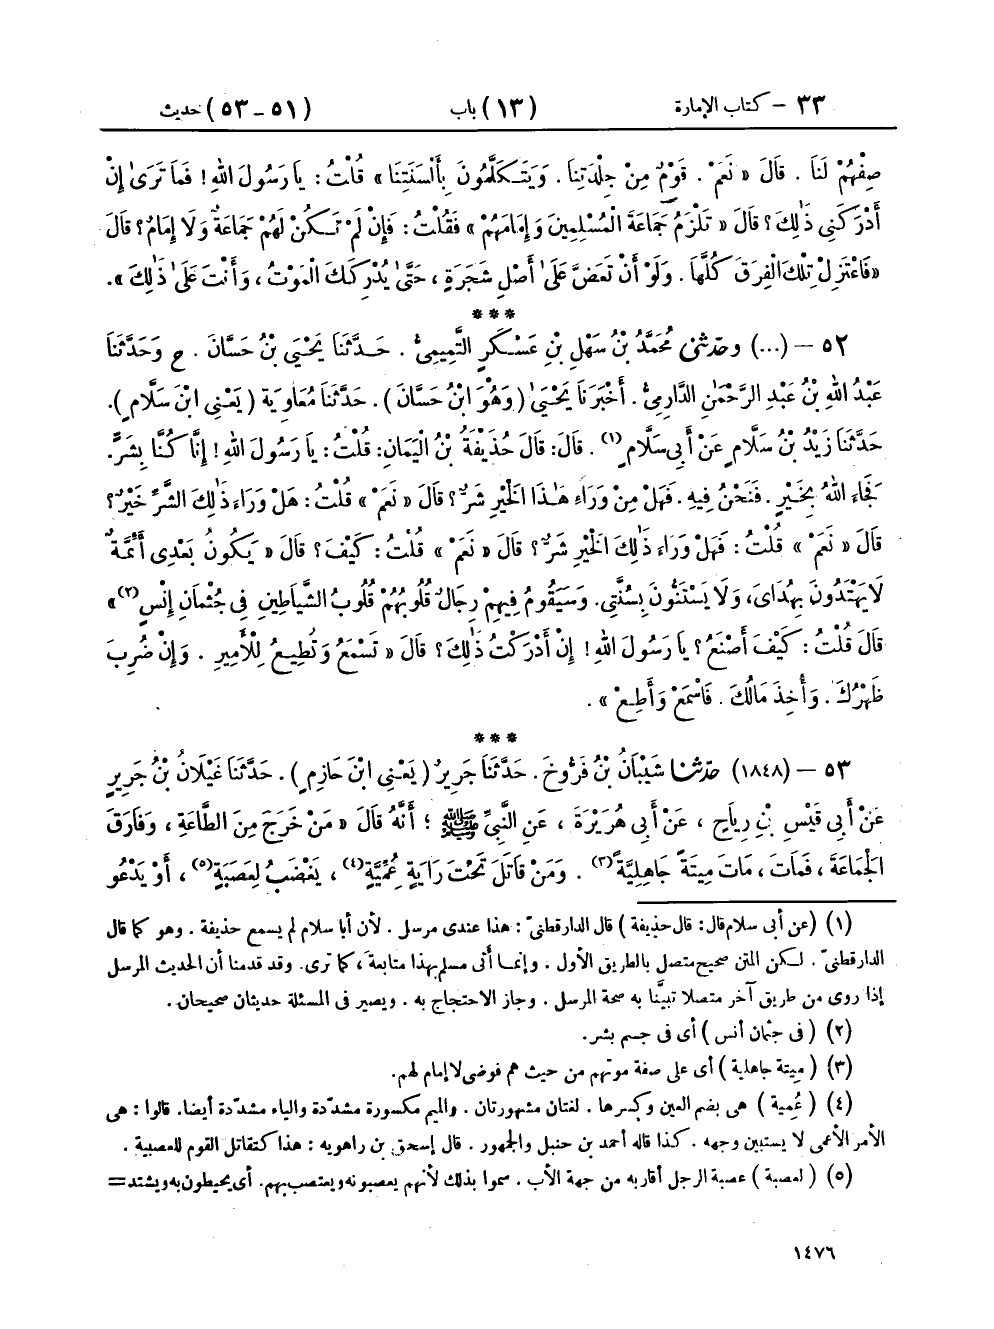 ٣٣ – كتاب الإمارة (١٣) باب (٥١ – ٥٣) حديث
صِفْهُمْ لَنَا . قَالَ « نَعَمْ . قَوْمٌ مِنْ جِلْدَتِنَا . وَيَتَكَلَّمُونَ بِأَلْسِنَتِنَا » قُلْتُ : يَا رَسُولَ اللهِ ! فَمَا تَرَىٰ إِنْ
أَدْرَكَنِي ذَٰلِكَ ؟ قَالَ « تَلْزَمُ جَمَاعَةَ الْمُسْلِمِينَ وَإِمَامَهُمْ » فَقُلْتُ : فَإِنْ لَمْ تَكُنْ لَهُمْ جَمَاعَةٌ وَلَا إِمَامٌ ؟ قَالَ
« فَاعْتَزِلْ تِلْكَ الْفِرَقَ كُلَّهَا . وَلَوْ أَنْ تَعَضَّ عَلَىٰ أَصْلِ شَجَرَةٍ ، حَتَّىٰ يُدْرِكَكَ الْمَوْتُ ، وَأَنْتَ عَلَىٰ ذَٰلِكَ » .
***
٥٢ – (...) وحدّثنى مُحَمَّدُ بْنُ سَهْلِ بْنِ عَسْكَرٍ التَّمِيمِىُّ . حَدَّثَنَا يَحْيَىٰ بْنُ حَسَّانَ . ح وَحَدَّثَنَا
عَبْدُ اللهِ بْنُ عَبْدِ الرَّحْمَٰنِ الدَّارِمِىُّ . أَخْبَرَنَا يَحْيَىٰ ( وَهُوَ ابْنُ حَسَّانَ ) . حَدَّثَنَا مُعَاوِيَة ( يَعْنِى ابْنَ سَلَّامٍ ) .
حَدَّثَنَا زَيْدُ بْنُ سَلَّامٍ عَنْ أَبِى سَلَّامٍ(١) . قَالَ : قَالَ حُذَيْفَةُ بْنُ الْيَمَانِ : قُلْتُ : يَا رَسُولَ اللهِ ! إِنَّا كُنَّا بِشَرٍّ .
فَجَاءَ اللهُ بِخَيْرٍ . فَنَحْنُ فِيهِ . فَهَلْ مِنْ وَرَاءِ هَٰذَا الْخَيْرِ شَرٌّ ؟ قَالَ « نَعَمْ » قُلْتُ : هَلْ وَرَاءَ ذَٰلِكَ الشَّرِّ خَيْرٌ ؟
قَالَ « نَعَمْ » قُلْتُ : فَهَلْ وَرَاءَ ذَٰلِكَ الْخَيْرِ شَرٌّ ؟ قَالَ « نَعَمْ » قُلْتُ : كَيْفَ ؟ قَالَ « يَكُونُ بَعْدِى أَئِمَّةٌ
لَا يَهْتَدُونَ بِهُدَاىَ ، وَلَا يَسْتَنُّونَ بِسُنَّتِى . وَسَيَقُومُ فِيهِمْ رِجَالٌ قُلُوبُهُمْ قُلُوبُ الشَّيَاطِينِ فِى جُثْمَانِ إِنْسٍ(٢) »
قَالَ قُلْتُ : كَيْفَ أَصْنَعُ ؟ يَا رَسُولَ اللهِ ! إِنْ أَدْرَكْتُ ذَٰلِكَ ؟ قَالَ « تَسْمَعُ وَتُطِيعُ لِلْأَمِيرِ . وَإِنْ ضُرِبَ
ظَهْرُكَ . وَأُخِذَ مَالُكَ . فَاسْمَعْ وَأَطِعْ » .
***
٥٣ – (١٨٤٨) حدّثنا شَيْبَانُ بْنُ فَرُّوخَ . حَدَّثَنَا جَرِيرٌ ( يَعْنِى ابْنَ حَازِمٍ ) . حَدَّثَنَا غَيْلَانُ بْنُ جَرِيرٍ
عَنْ أَبِى قَيْسِ بْنِ رِيَاحٍ ، عَنْ أَبِى هُرَيْرَةَ ، عَنِ النَّبِىِّ ﷺ ؛ أَنَّهُ قَالَ « مَنْ خَرَجَ مِنَ الطَّاعَةِ ، وَفَارَقَ
الْجَمَاعَةَ ، فَمَاتَ ، مَاتَ مِيتَةً جَاهِلِيَّةً(٣) . وَمَنْ قَاتَلَ تَحْتَ رَايَةٍ عُمِّيَّةٍ(٤) ، يَغْضَبُ لِعَصَبَةٍ(٥) ، أَوْ يَدْعُو
(١) (عن أبى سلام قال : قال حذيفة ) قال الدارقطنىّ : هذا عندى مرسل . لأن أبا سلام لم يسمع حذيفة . وهو كما قال
الدارقطنىّ . لكن المتن صحيح متصل بالطريق الأول . وإنما أتى مسلم بهذا متابعة ، كما ترى . وقد قدمنا أن الحديث المرسل
إذا روى من طريق آخر متصلا تبينّا به صحة المرسل . وجاز الاحتجاج به . ويصير فى المسئلة حديثان صحيحان .
(٢) ( فى جثمان أنس ) أى فى جسم بشر .
(٣) ( ميتة جاهلية ) أى على صفة موتهم من حيث هم فوضى لا إمام لهم .
(٤) ( عُمية ) هى بضم العين وكسرها . لغتان مشهورتان . والميم مكسورة مشدّدة والياء مشدّدة أيضا . قالوا : هى
الأمر الأعمى لا يستبين وجهه . كذا قاله أحمد بن حنبل والجمهور . قال إسحق بن راهويه : هذا كتقاتل القوم للعصبية .
(٥) ( لعصبة ) عصبة الرجل أقاربه من جهة الأب . سموا بذلك لأنهم يعصبونه ويعتصب بهم . أى يحيطون به ويشتد =
١٤٧٦